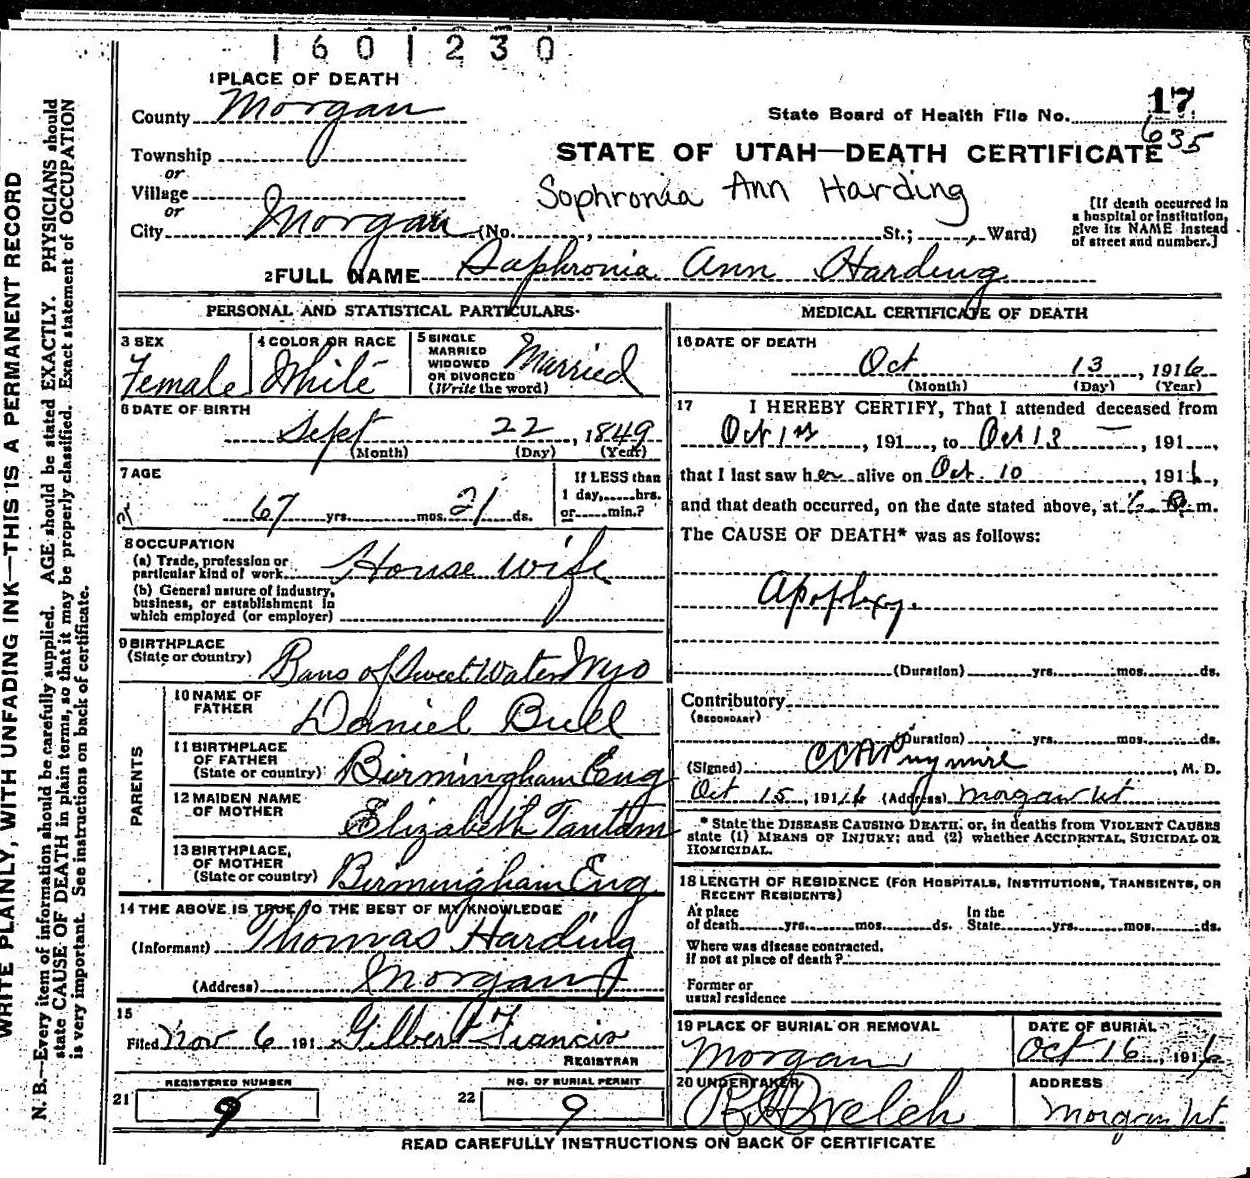 1601230
1 PLACE OF DEATH
County Morgan
State Board of Health File No. 17
635
Township
or
STATE OF UTAH—DEATH CERTIFICATE
Village
or
Sophronia Ann Harding
City Morgan (No. , St.; , Ward)
[If death occurred in
a hospital or institution,
give its NAME instead
of street and number.]
2 FULL NAME Saphronia Ann Harding
PERSONAL AND STATISTICAL PARTICULARS
3 SEX
Female
4 COLOR OR RACE
White
5 SINGLE
MARRIED
WIDOWED
OR DIVORCED
(Write the word)
Married
6 DATE OF BIRTH
Sept 22, 1849
(Month) (Day) (Year)
7 AGE
67 yrs. mos. 21 ds.
If LESS than
1 day, hrs.
or min.?
8 OCCUPATION
(a) Trade, profession or
particular kind of work House wife
(b) General nature of industry,
business, or establishment in
which employed (or employer)
9 BIRTHPLACE
(State or country) of Sweet Water Wyo
PARENTS
10 NAME OF
FATHER Daniel Bull
11 BIRTHPLACE
OF FATHER
(State or country) Birmingham Eng
12 MAIDEN NAME
OF MOTHER Elizabeth Tantam
13 BIRTHPLACE,
OF MOTHER
(State or country) Birmingham Eng
14 THE ABOVE IS TRUE TO THE BEST OF MY KNOWLEDGE
(Informant) Thomas Harding
(Address) Morgan
15
Filed Nov 6 191 Gilbert Francis
REGISTRAR
REGISTERED NUMBER
21 9
NO. OF BURIAL PERMIT
22 9
MEDICAL CERTIFICATE OF DEATH
16 DATE OF DEATH
Oct 13, 1916
(Month) (Day) (Year)
17 I HEREBY CERTIFY, That I attended deceased from
Oct 1st, 191 , to Oct 13, 191 ,
that I last saw her alive on Oct 10, 1916,
and that death occurred, on the date stated above, at 6 P m.
The CAUSE OF DEATH* was as follows:
Apoplexy.
(Duration) yrs. mos. ds.
Contributory
(SECONDARY)
(Duration) yrs. mos. ds.
(Signed) , M. D.
Oct 15, 1916 (Address) Morgan Ut
* State the DISEASE CAUSING DEATH, or, in deaths from VIOLENT CAUSES
state (1) MEANS OF INJURY; and (2) whether ACCIDENTAL, SUICIDAL OR
HOMICIDAL.
18 LENGTH OF RESIDENCE (FOR HOSPITALS, INSTITUTIONS, TRANSIENTS, OR
RECENT RESIDENTS)
At place
of death yrs. mos. ds.
In the
State yrs. mos. ds.
Where was disease contracted,
if not at place of death?
Former or
usual residence
19 PLACE OF BURIAL OR REMOVAL
Morgan
DATE OF BURIAL
Oct 16, 1916
20 UNDERTAKER
Welch
ADDRESS
Morgan Ut.
READ CAREFULLY INSTRUCTIONS ON BACK OF CERTIFICATE
WRITE PLAINLY, WITH UNFADING INK—THIS IS A PERMANENT RECORD
N. B.—Every item of information should be carefully supplied. AGE should be stated EXACTLY. PHYSICIANS should
state CAUSE OF DEATH in plain terms, so that it may be properly classified. Exact statement of OCCUPATION
is very important. See instructions on back of certificate.